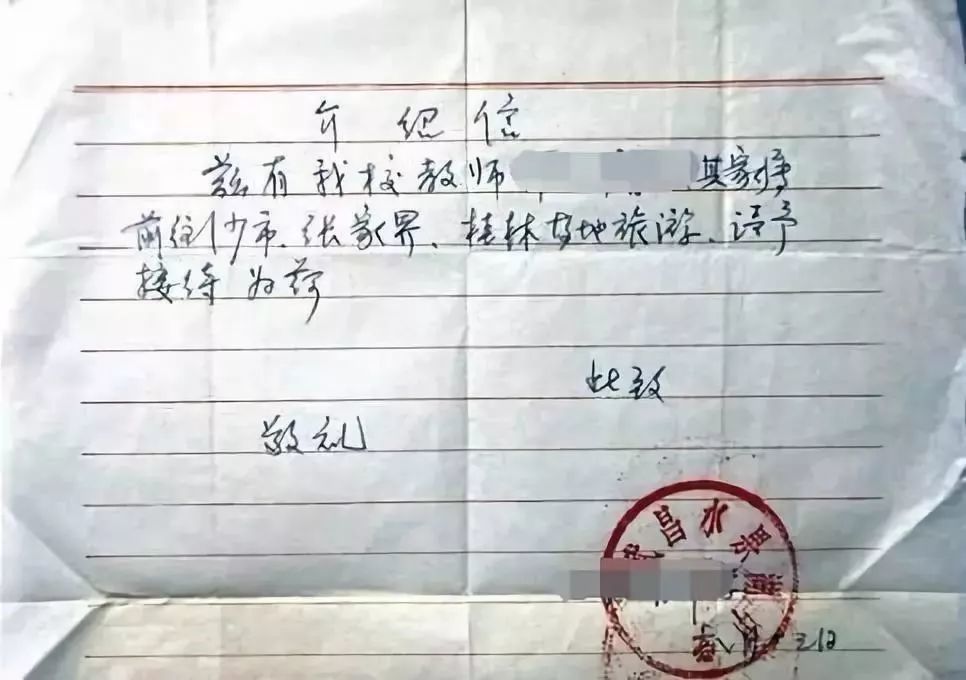 介绍信
兹有我校教师 其家属
前往沙市、张家界、桂林等地旅游、请予
接待为荷
此致
敬礼
武昌水果湖
八月 三日